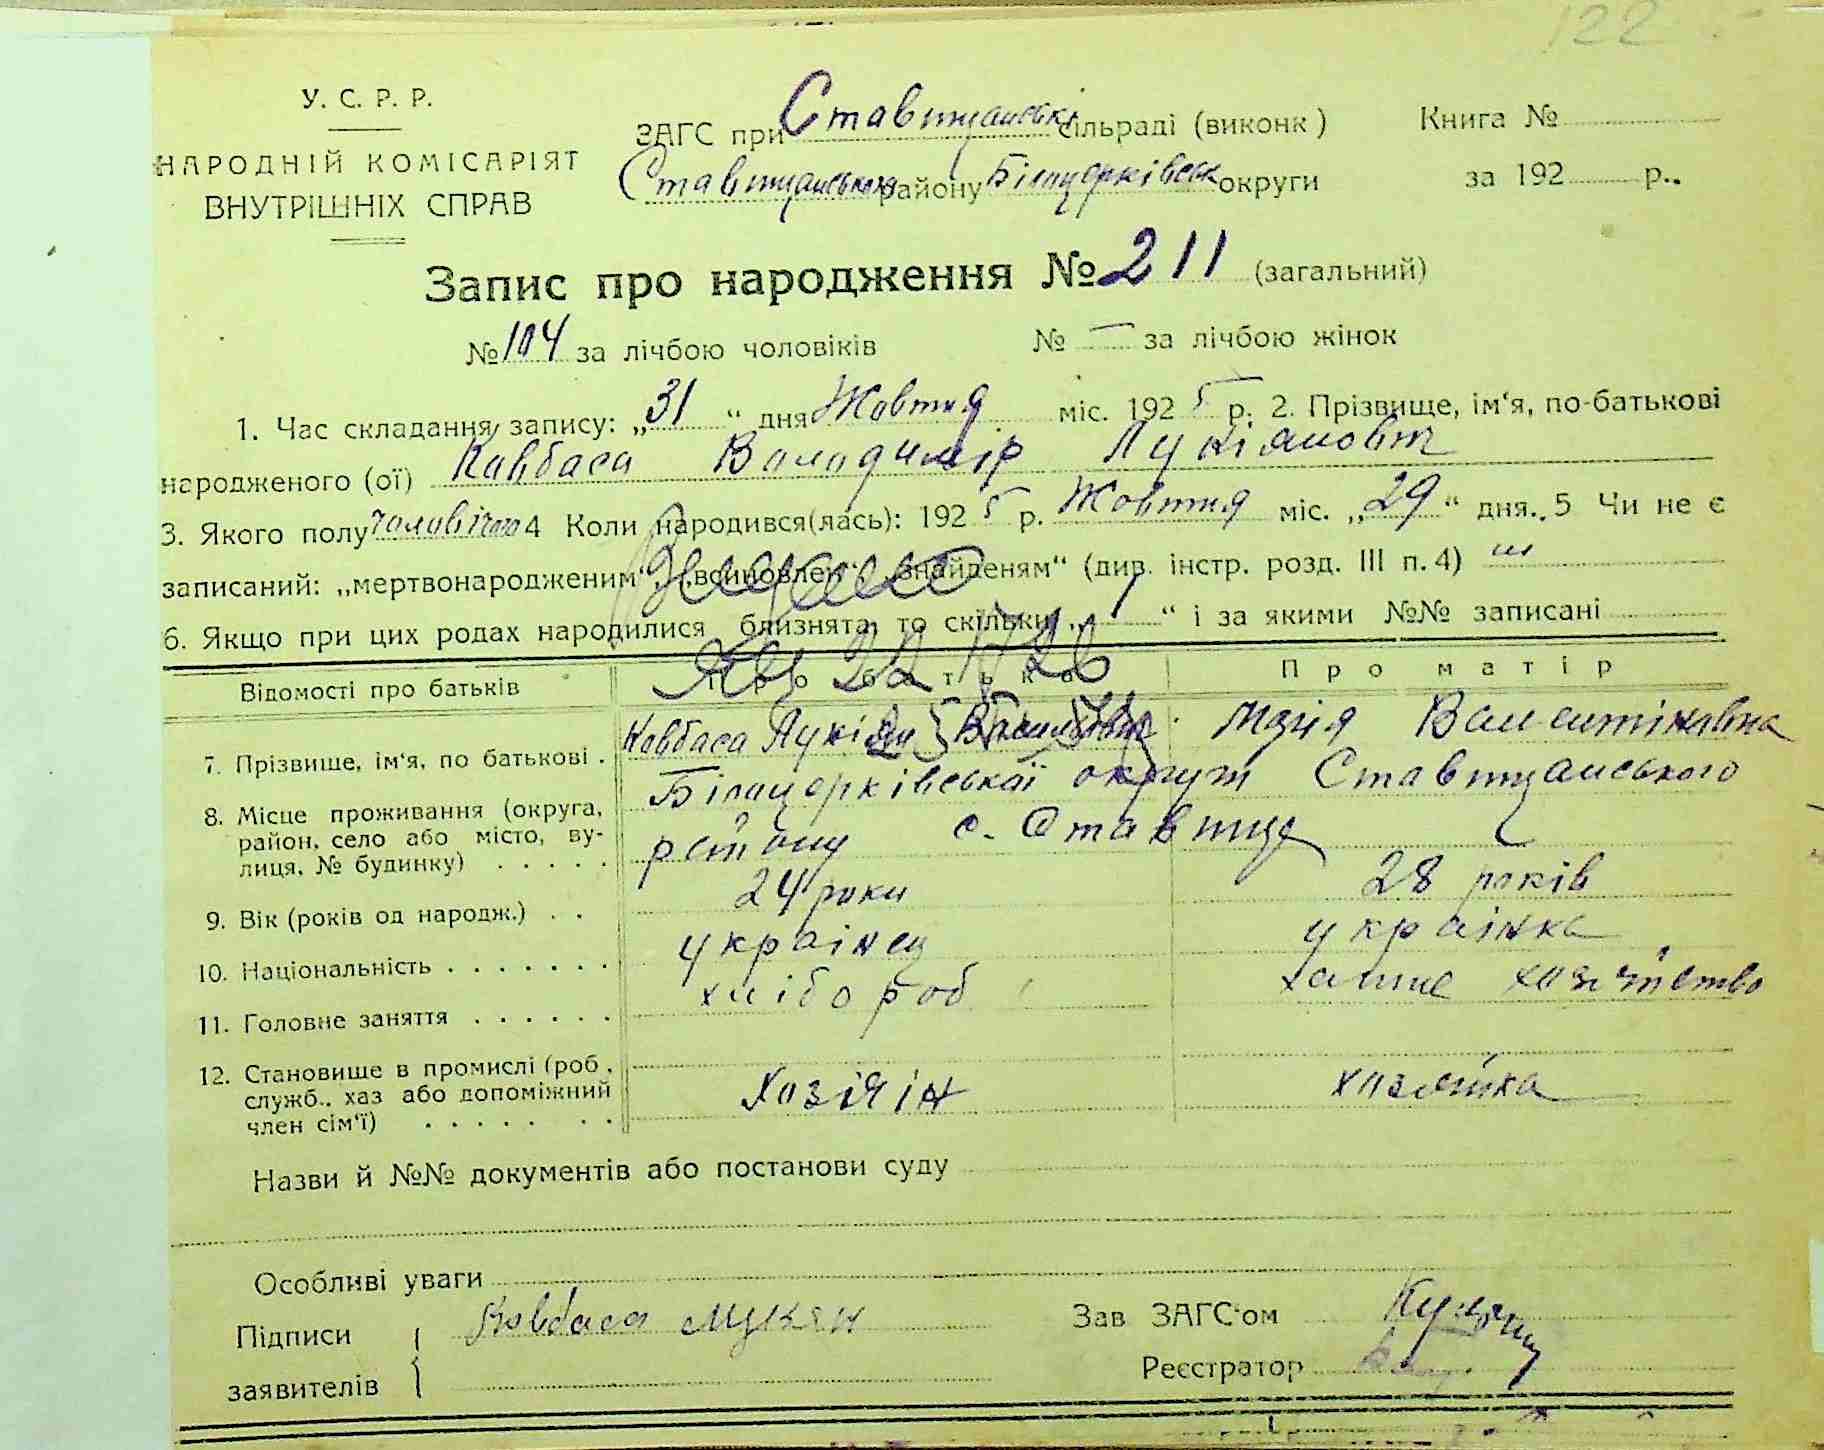 122
У. С. Р. Р.
НАРОДНІЙ КОМІСАРІЯТ
ВНУТРІШНІХ СПРАВ
ЗАГС при Ставищанські сільраді (виконк)
Ставищанського району Білоцерківськ округи
Книга №
за 192 р..
Запис про народження № 211 (загальний)
№ 104 за лічбою чоловіків № — за лічбою жінок
1. Час складання запису: „31“ дня Жовтня міс. 1925 р. 2. Прізвище, ім‘я, по-батькові
народженого (ої) Ковбаса Володимір Лукіянович
3. Якого полу чоловічого 4 Коли народився(лась): 1925 р. Жовтня міс. „29“ дня. 5 Чи не є
записаний: „мертвонародженим“, „всиновлен“, „знайденям“ (див. інстр. розд. III п. 4)
6. Якщо при цих родах народилися близнята, то скільки „ “ і за якими №№ записані
Відомості про батьків Про батька Про матір
7. Прізвище, ім‘я, по батькові . Ковбаса Лукіян Васильович Марія Валентінівна
8. Місце проживання (округа, Білоцерківської округи Ставищанського
район, село або місто, ву- району с. Ставище
лиця, № будинку) . . . . .
9. Вік (років од народж.) . . 24 роки 28 років
10. Національність . . . . . . . українец українка
11. Головне заняття . . . . . . хлібороб хатне хозяйство
12. Становище в промислі (роб.,
служб., хаз або допоміжний хозяін хозяйка
член сім‘ї) . . . . . . .
Назви й №№ документів або постанови суду
Особливі уваги
Підписи Ковбаса Лукян Зав ЗАГС‘ом
заявителів Реєстратор